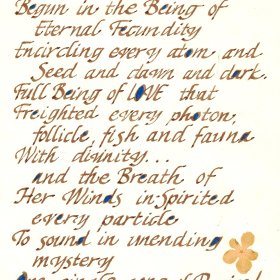 Begun in the Being of
Eternal Fecundity
Encircling every atom and
Seed and dawn and dark.
Full Being of LOVE that
Freighted every photon,
follicle, fish and fauna
With divinity...
and the Breath of
Her Winds inSpirited
every particle
To sound in unending
mystery
One single song of